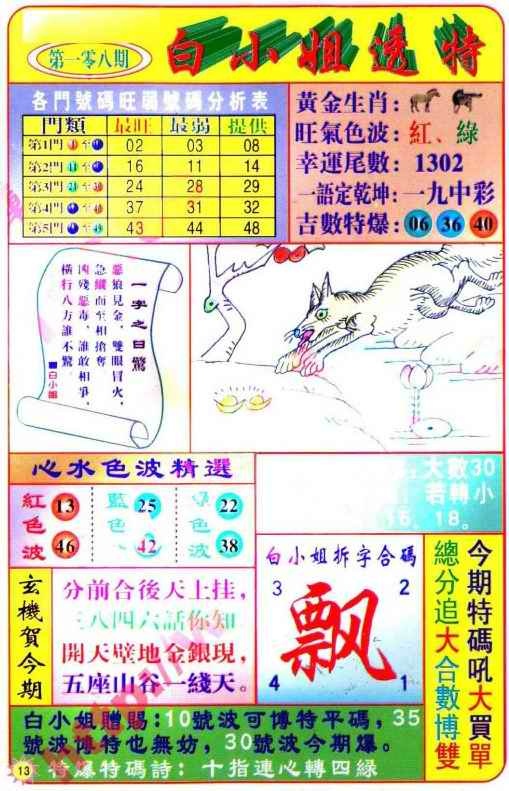 第一零八期
白小姐透特
各門號碼旺弱號碼分析表
門類 最旺 最弱 提供
第1門 02 03 08
第2門 16 11 14
第3門 24 28 29
第4門 37 31 32
第5門 43 44 48
黃金生肖:
旺氣色波: 紅、綠
幸運尾數: 1302
一語定乾坤: 一九中彩
吉數特爆: 06 36 40
一字之日驚
惡狼見金,雙眼冒火,
急縱而至相搶奪
凶殘惡毒、誰敢相爭,
橫行八方誰不驚
■白小姐
心水色波精選
紅色波 13 46
藍色 25 42
綠色波 22 38
大數30
若轉小
16, 18。
玄機賀今期
分前合後天上挂,
三八四六話你知
開天壁地金銀現,
五座山谷一綫天。
白小姐拆字合碼
3 2
飄
4 1
今期特碼吼大買單
總分追大合數博雙
白小姐贈賜:10號波可博特平碼,35
號波博特也無妨,30號波今期爆。
特爆特碼詩: 十指連心轉四綠
13